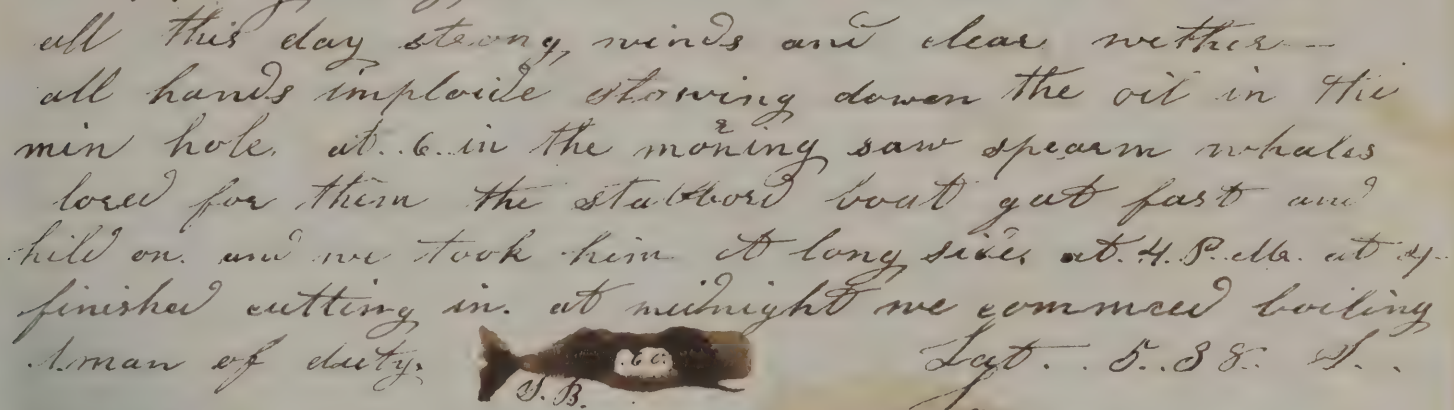 all this day strong winds and clear wether
all hands imploide stowing dowen the oil in the
min hole. at. 6. in the morning saw spearm whales
lored for them the stabbord boat gat fast and
hild on. and we took him at long side, at. 4. P. M. at
finished cutting in. at midnight we commced boiling
1. man of duty.
60
S. B.
Lat. . 5. 38. S. .